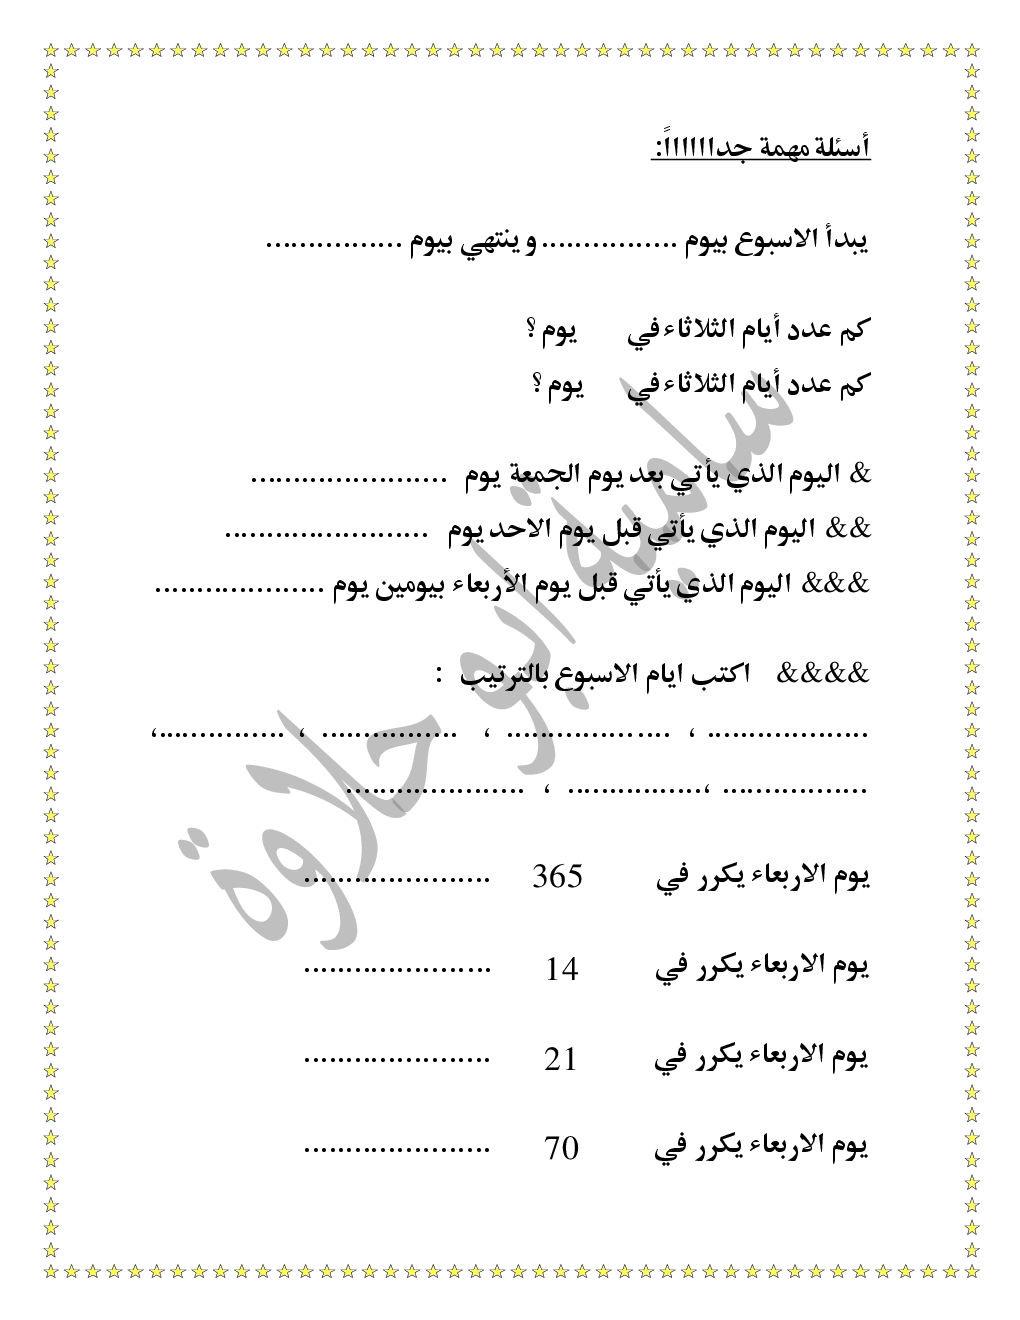 أسئلة مهمة جداااااااً:
يبدأ الاسبوع بيوم ................ و ينتهي بيوم ................
كم عدد أيام الثلاثاء في يوم ؟
كم عدد أيام الثلاثاء في يوم ؟
& اليوم الذي يأتي بعد يوم الجمعة يوم .......................
&& اليوم الذي يأتي قبل يوم الاحد يوم ........................
&&& اليوم الذي يأتي قبل يوم الأربعاء بيومين يوم ....................
&&&& اكتب ايام الاسبوع بالترتيب :
................... ، ................... ، ................ ، ...............،
................. ،................ ، .....................
يوم الاربعاء يكرر في 365 ......................
يوم الاربعاء يكرر في 14 ......................
يوم الاربعاء يكرر في 21 ......................
يوم الاربعاء يكرر في 70 ......................
سامية ابو حلاوة